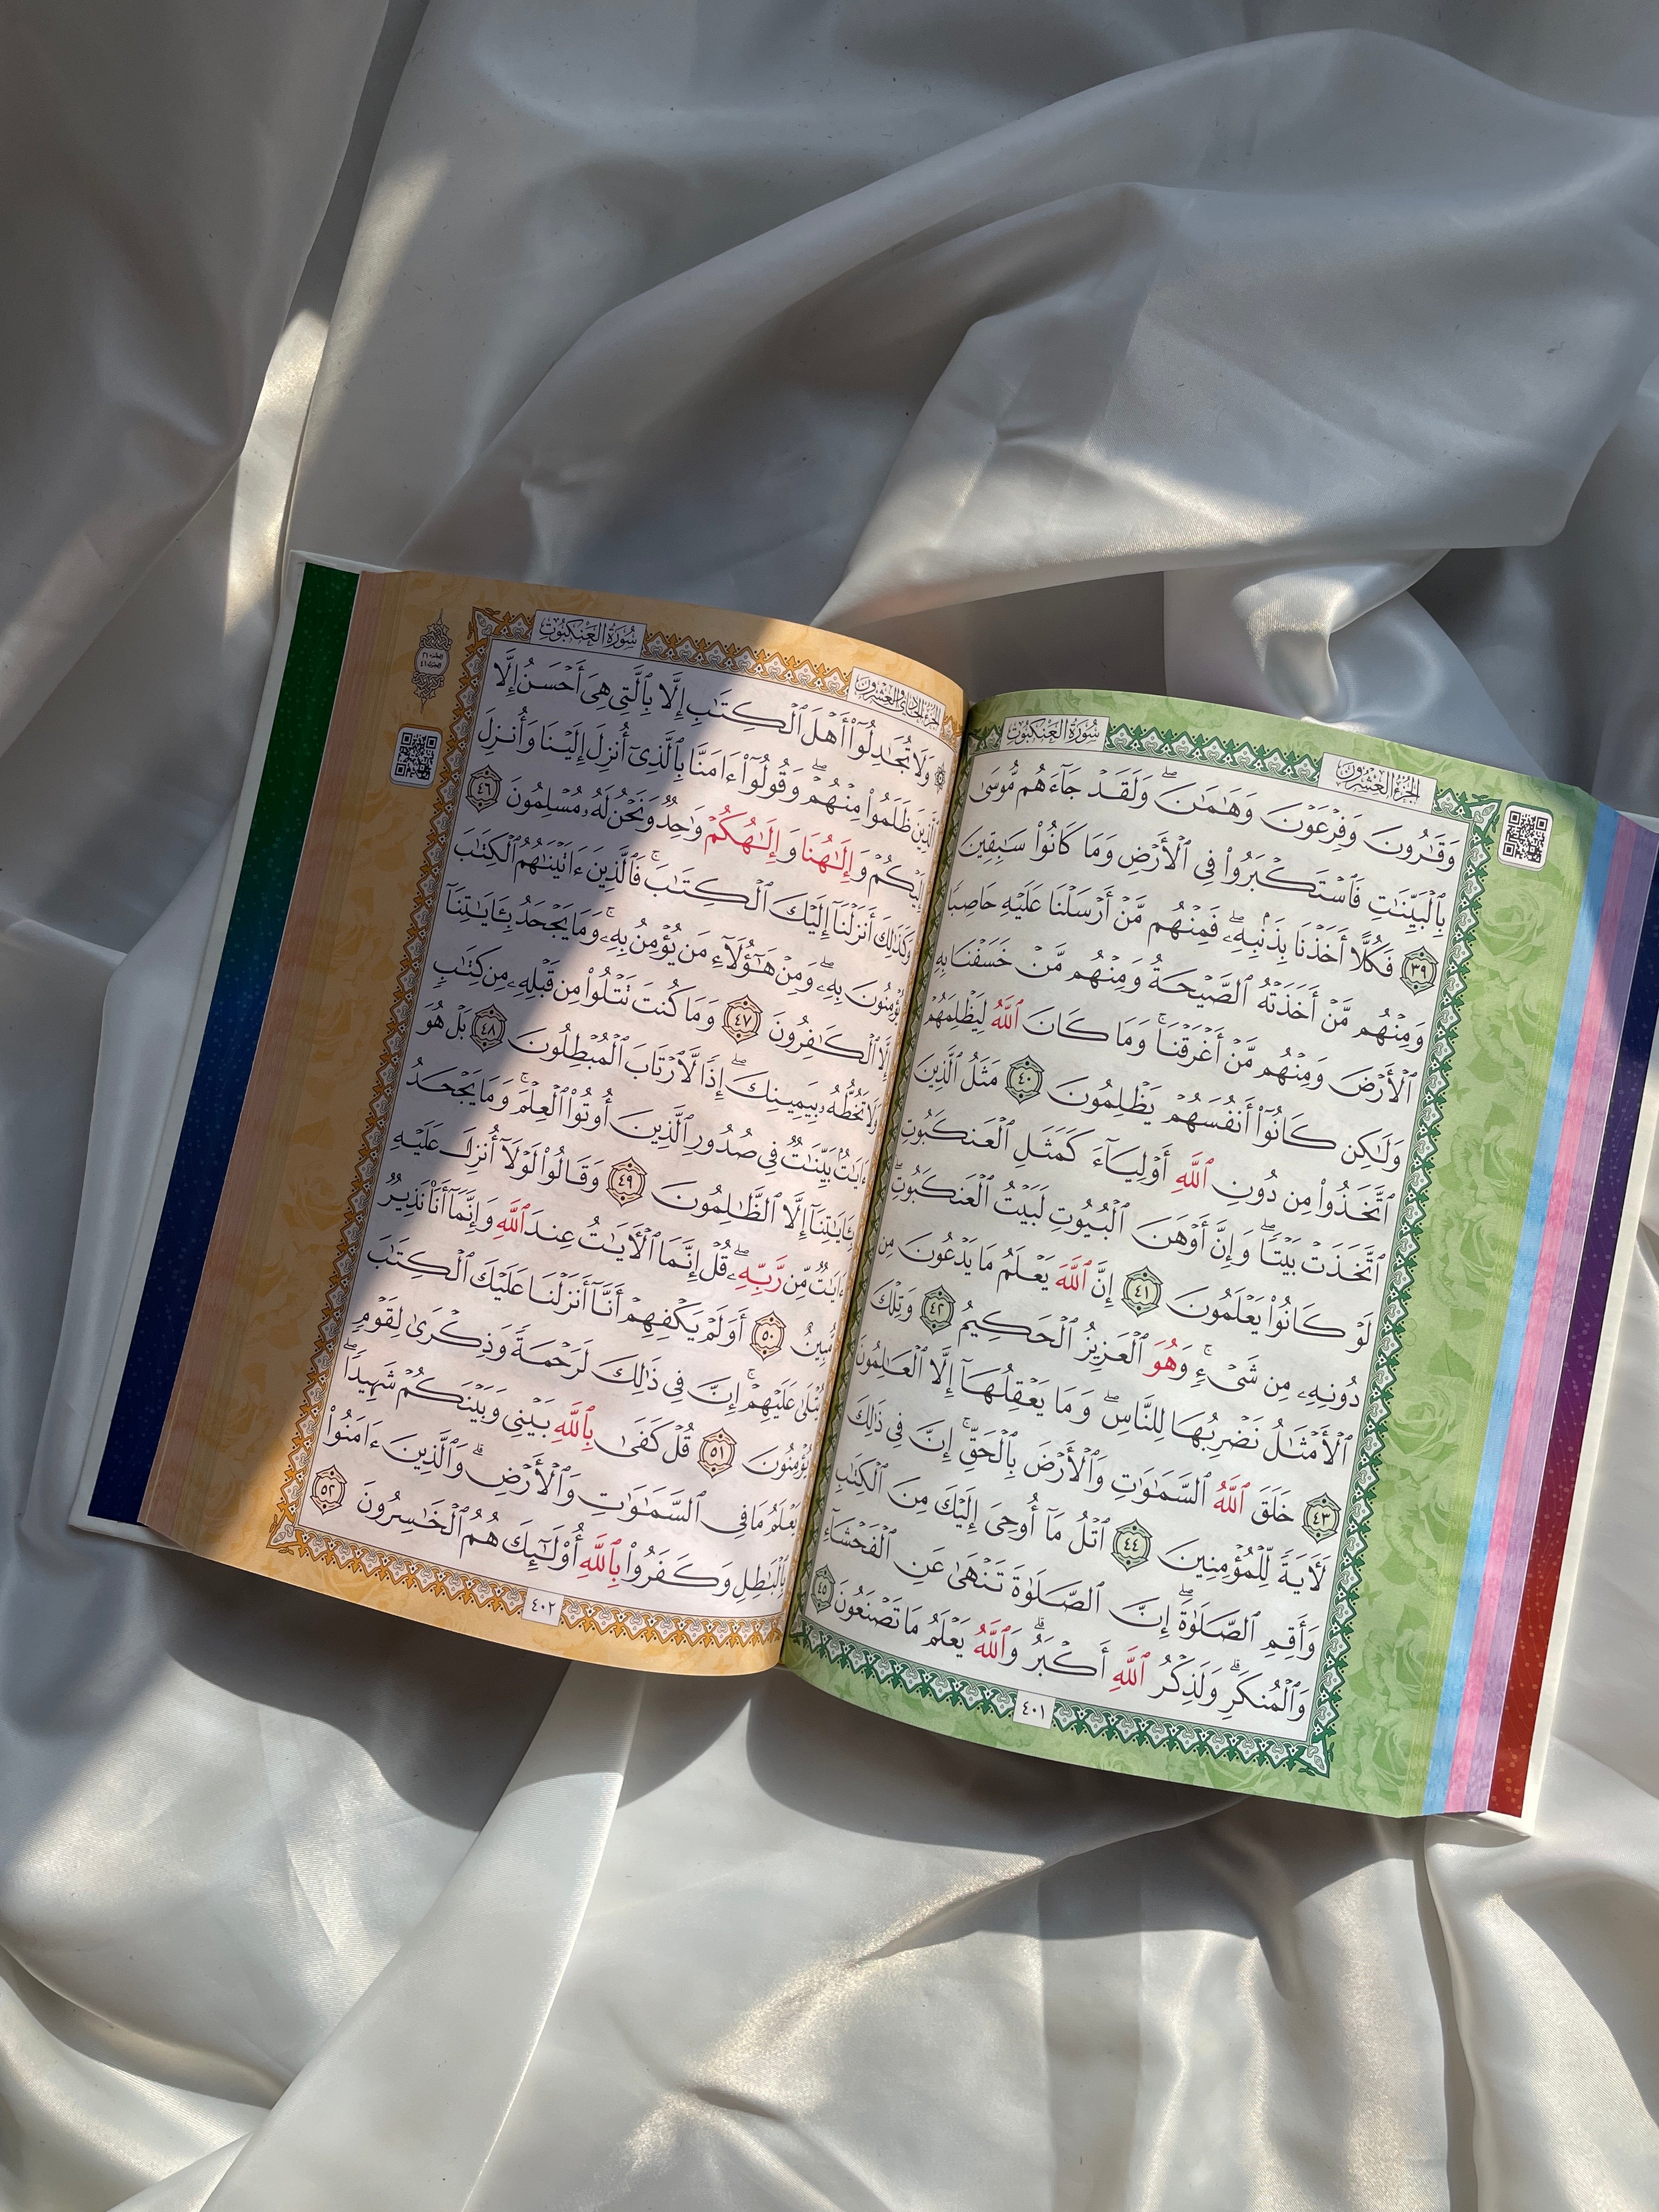 سُورَةُ العَنكَبُوتِ
الجُزْءُ العِشْرُونَ
وَقَـٰرُونَ وَفِرْعَوْنَ وَهَـٰمَـٰنَ ۖ وَلَقَدْ جَآءَهُم مُّوسَىٰ
بِٱلْبَيِّنَـٰتِ فَٱسْتَكْبَرُوا۟ فِى ٱلْأَرْضِ وَمَا كَانُوا۟ سَـٰبِقِينَ
٣٩ فَكُلًّا أَخَذْنَا بِذَنۢبِهِۦ ۖ فَمِنْهُم مَّنْ أَرْسَلْنَا عَلَيْهِ حَاصِبًا
وَمِنْهُم مَّنْ أَخَذَتْهُ ٱلصَّيْحَةُ وَمِنْهُم مَّنْ خَسَفْنَا بِهِ
ٱلْأَرْضَ وَمِنْهُم مَّنْ أَغْرَقْنَا ۚ وَمَا كَانَ ٱللَّهُ لِيَظْلِمَهُمْ
وَلَـٰكِن كَانُوٓا۟ أَنفُسَهُمْ يَظْلِمُونَ ٤٠ مَثَلُ ٱلَّذِينَ
ٱتَّخَذُوا۟ مِن دُونِ ٱللَّهِ أَوْلِيَآءَ كَمَثَلِ ٱلْعَنكَبُوتِ
ٱتَّخَذَتْ بَيْتًا ۖ وَإِنَّ أَوْهَنَ ٱلْبُيُوتِ لَبَيْتُ ٱلْعَنكَبُوتِ ۖ
لَوْ كَانُوا۟ يَعْلَمُونَ ٤١ إِنَّ ٱللَّهَ يَعْلَمُ مَا يَدْعُونَ مِن
دُونِهِۦ مِن شَىْءٍ ۚ وَهُوَ ٱلْعَزِيزُ ٱلْحَكِيمُ ٤٢ وَتِلْكَ
ٱلْأَمْثَـٰلُ نَضْرِبُهَا لِلنَّاسِ ۖ وَمَا يَعْقِلُهَآ إِلَّا ٱلْعَـٰلِمُونَ
٤٣ خَلَقَ ٱللَّهُ ٱلسَّمَـٰوَٰتِ وَٱلْأَرْضَ بِٱلْحَقِّ ۚ إِنَّ فِى ذَٰلِكَ
لَـَٔايَةً لِّلْمُؤْمِنِينَ ٤٤ ٱتْلُ مَآ أُوحِىَ إِلَيْكَ مِنَ ٱلْكِتَـٰبِ
وَأَقِمِ ٱلصَّلَوٰةَ ۖ إِنَّ ٱلصَّلَوٰةَ تَنْهَىٰ عَنِ ٱلْفَحْشَآءِ
وَٱلْمُنكَرِ ۗ وَلَذِكْرُ ٱللَّهِ أَكْبَرُ ۗ وَٱللَّهُ يَعْلَمُ مَا تَصْنَعُونَ ٤٥
٤٠١
سُورَةُ العَنكَبُوتِ
الجُزْءُ الحَادِى وَالعِشْرُونَ
وَلَا تُجَـٰدِلُوٓا۟ أَهْلَ ٱلْكِتَـٰبِ إِلَّا بِٱلَّتِى هِىَ أَحْسَنُ إِلَّا
ٱلَّذِينَ ظَلَمُوا۟ مِنْهُمْ ۖ وَقُولُوٓا۟ ءَامَنَّا بِٱلَّذِىٓ أُنزِلَ إِلَيْنَا وَأُنزِلَ
إِلَيْكُمْ وَإِلَـٰهُنَا وَإِلَـٰهُكُمْ وَٰحِدٌ وَنَحْنُ لَهُۥ مُسْلِمُونَ ٤٦
وَكَذَٰلِكَ أَنزَلْنَآ إِلَيْكَ ٱلْكِتَـٰبَ ۚ فَٱلَّذِينَ ءَاتَيْنَـٰهُمُ ٱلْكِتَـٰبَ
يُؤْمِنُونَ بِهِۦ ۖ وَمِنْ هَـٰٓؤُلَآءِ مَن يُؤْمِنُ بِهِۦ ۚ وَمَا يَجْحَدُ بِـَٔايَـٰتِنَآ
إِلَّا ٱلْكَـٰفِرُونَ ٤٧ وَمَا كُنتَ تَتْلُوا۟ مِن قَبْلِهِۦ مِن كِتَـٰبٍ
وَلَا تَخُطُّهُۥ بِيَمِينِكَ ۖ إِذًا لَّٱرْتَابَ ٱلْمُبْطِلُونَ ٤٨ بَلْ هُوَ
ءَايَـٰتٌۢ بَيِّنَـٰتٌ فِى صُدُورِ ٱلَّذِينَ أُوتُوا۟ ٱلْعِلْمَ ۚ وَمَا يَجْحَدُ
بِـَٔايَـٰتِنَآ إِلَّا ٱلظَّـٰلِمُونَ ٤٩ وَقَالُوا۟ لَوْلَآ أُنزِلَ عَلَيْهِ
ءَايَـٰتٌ مِّن رَّبِّهِۦ ۖ قُلْ إِنَّمَا ٱلْـَٔايَـٰتُ عِندَ ٱللَّهِ وَإِنَّمَآ أَنَا۠ نَذِيرٌ
مُّبِينٌ ٥٠ أَوَلَمْ يَكْفِهِمْ أَنَّآ أَنزَلْنَا عَلَيْكَ ٱلْكِتَـٰبَ
يُتْلَىٰ عَلَيْهِمْ ۚ إِنَّ فِى ذَٰلِكَ لَرَحْمَةً وَذِكْرَىٰ لِقَوْمٍ
يُؤْمِنُونَ ٥١ قُلْ كَفَىٰ بِٱللَّهِ بَيْنِى وَبَيْنَكُمْ شَهِيدًا ۖ
يَعْلَمُ مَا فِى ٱلسَّمَـٰوَٰتِ وَٱلْأَرْضِ ۗ وَٱلَّذِينَ ءَامَنُوا۟
بِٱلْبَـٰطِلِ وَكَفَرُوا۟ بِٱللَّهِ أُو۟لَـٰٓئِكَ هُمُ ٱلْخَـٰسِرُونَ ٥٢
٤٠٢